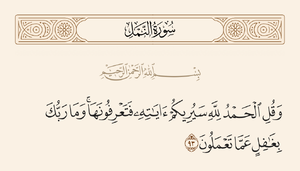 سُورَةُ النَّمْلِ
بِسْمِ اللَّهِ الرَّحْمَٰنِ الرَّحِيمِ
وَقُلِ ٱلْحَمْدُ لِلَّهِ سَيُرِيكُمْ ءَايَٰتِهِۦ فَتَعْرِفُونَهَا ۚ وَمَا رَبُّكَ
بِغَٰفِلٍ عَمَّا تَعْمَلُونَ ٩٣